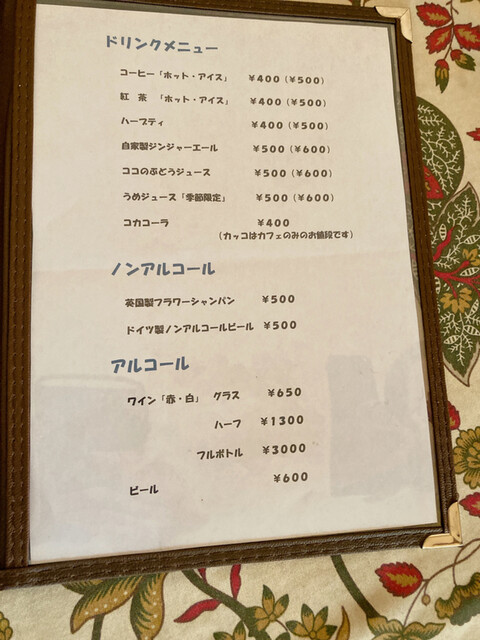 ドリンクメニュー
コーヒー「ホット・アイス」 ¥400（¥500）
紅 茶 「ホット・アイス」 ¥400（¥500）
ハーブティ ¥400（¥500）
自家製ジンジャーエール ¥500（¥600）
ココのぶどうジュース ¥500（¥600）
うめジュース「季節限定」 ¥500（¥600）
コカコーラ ¥400
（カッコはカフェのみのお値段です）
ノンアルコール
英国製フラワーシャンパン ¥500
ドイツ製ノンアルコールビール ¥500
アルコール
ワイン「赤・白」 グラス ¥650
ハーフ ¥1300
フルボトル ¥3000
ビール ¥600